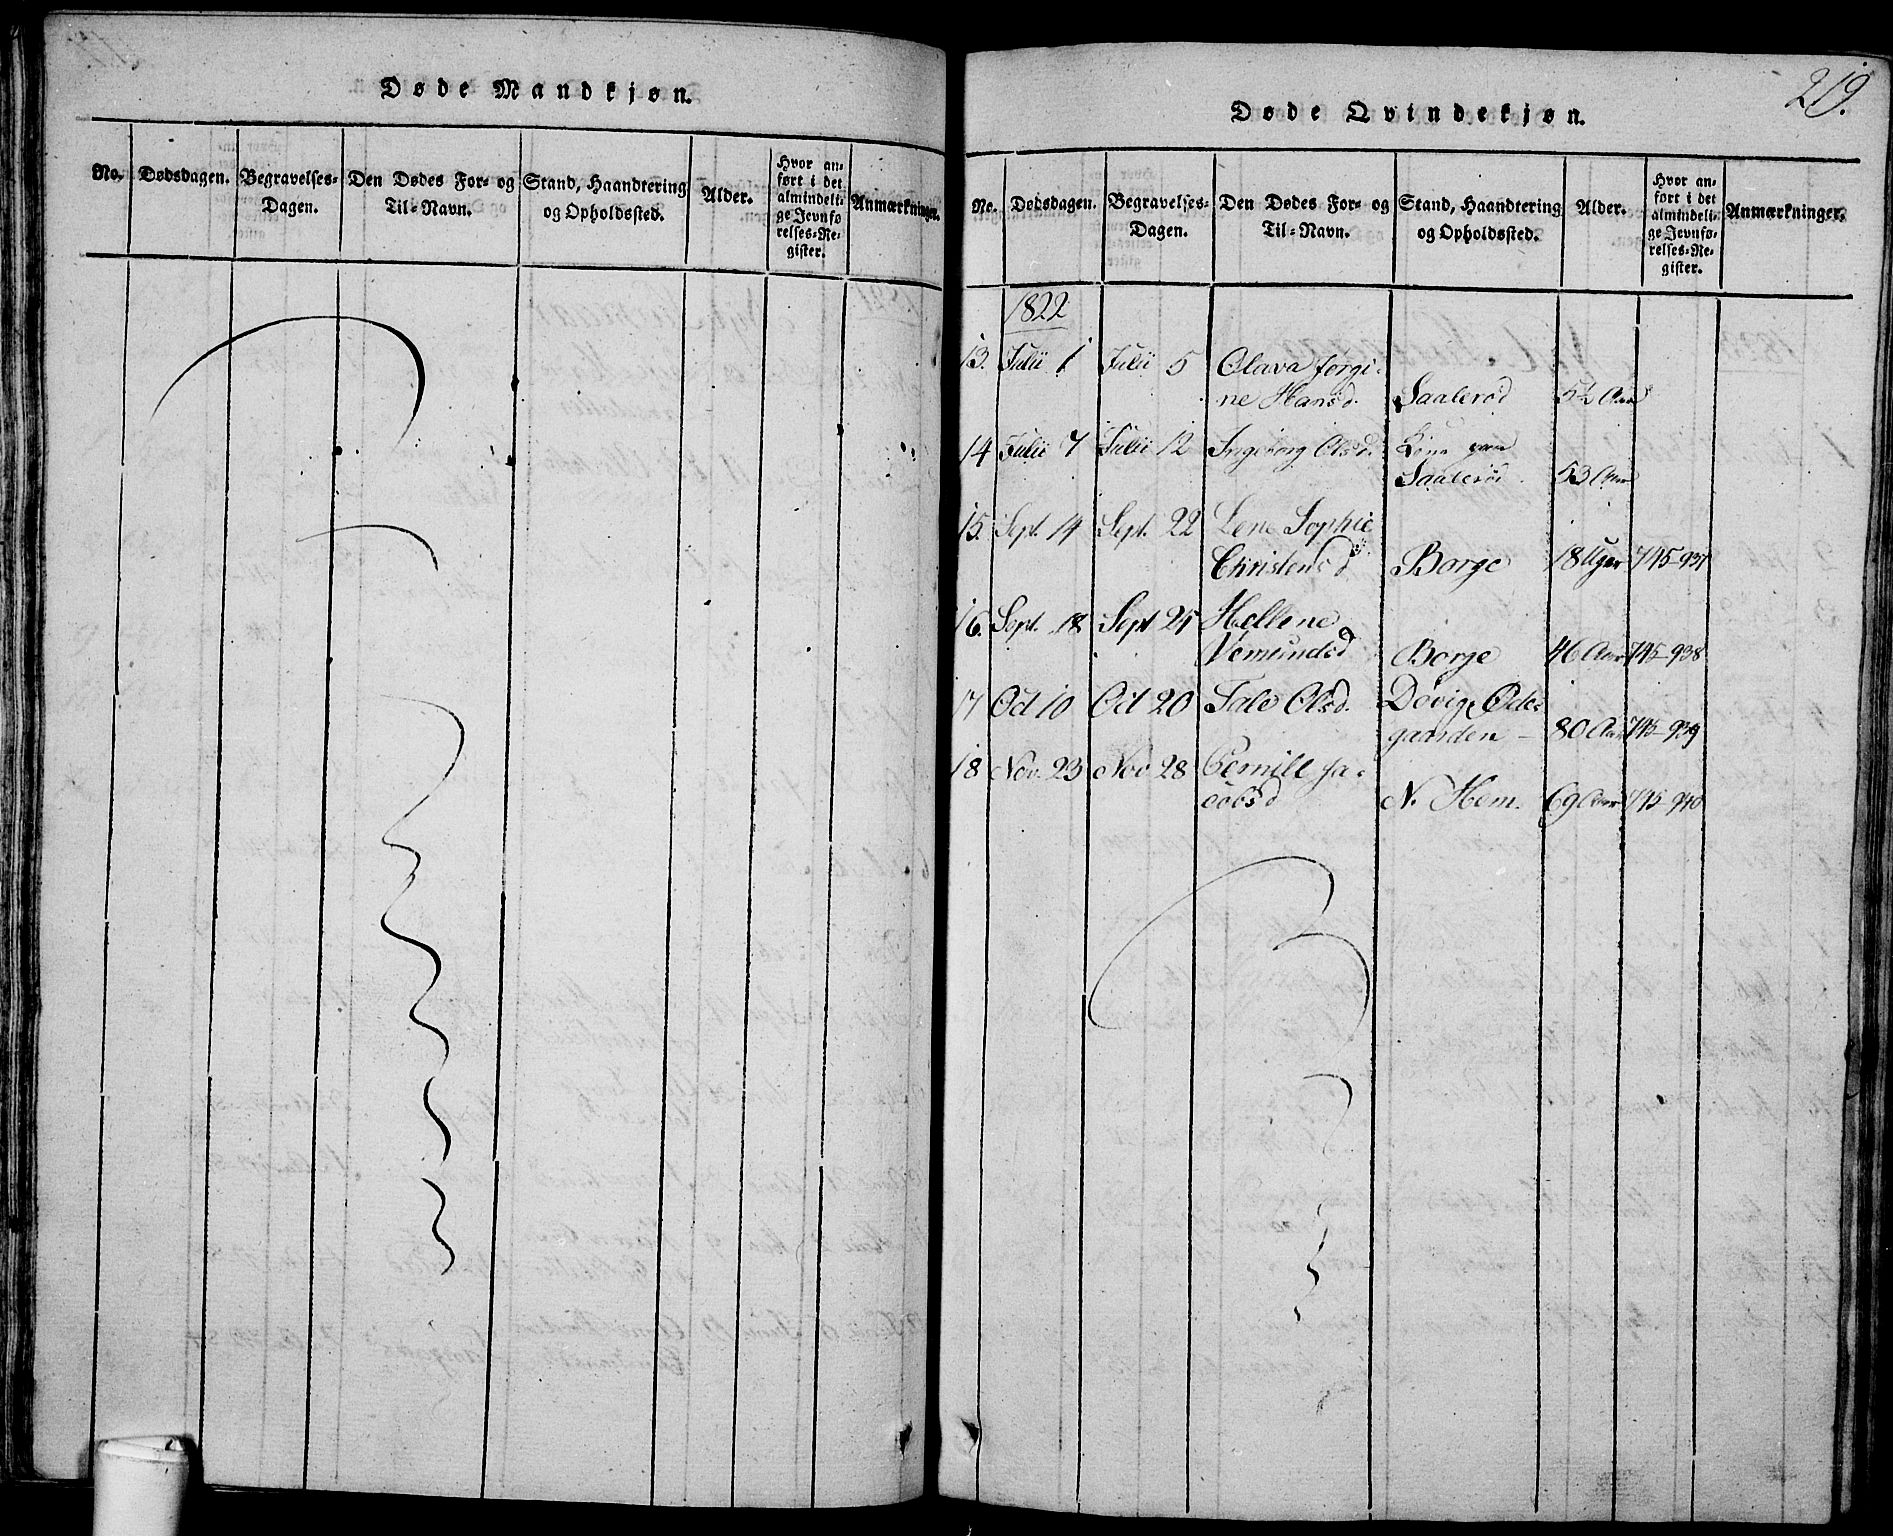 Døde Mandkjøn.
No. Dødsdagen. Begravelses-Dagen. Den Dødes For- og Til-Navn. Stand, Haandtering og Opholdssted. Alder. Hvor anført i det almindelige Jevnførelses-Register. Anmærkninger.
219.
Døde Qvindekjøn.
No. Dødsdagen. Begravelses-Dagen. Den Dødes For- og Til-Navn. Stand, Haandtering og Opholdssted. Alder. Hvor anført i det almindelige Jevnførelses-Register. Anmærkninger.
1822
13. Julii 1 Julii 5 Olava Jørgi-
ne Hansd. Saalerød 5½ Aar
14 Julii 7 Julii 12 Ingeborg Olsd. Kone paa
Saalerød. 53 Aar
15. Sept. 14 Sept. 22 Lene Sophie
Christensd. Borge 18 Uger 745-937
16. Sept. 18 Sept 25 Hellene
Vemundsd Borge 46 Aar 745-938
17 Oct 10 Oct 20 Tale Olsd. Døvig Øde-
gaarden - 80 Aar 745-939
18 Nov. 23 Nov 28 Pernille Ja-
cobsd N. Hem. 69 Aar 745-940